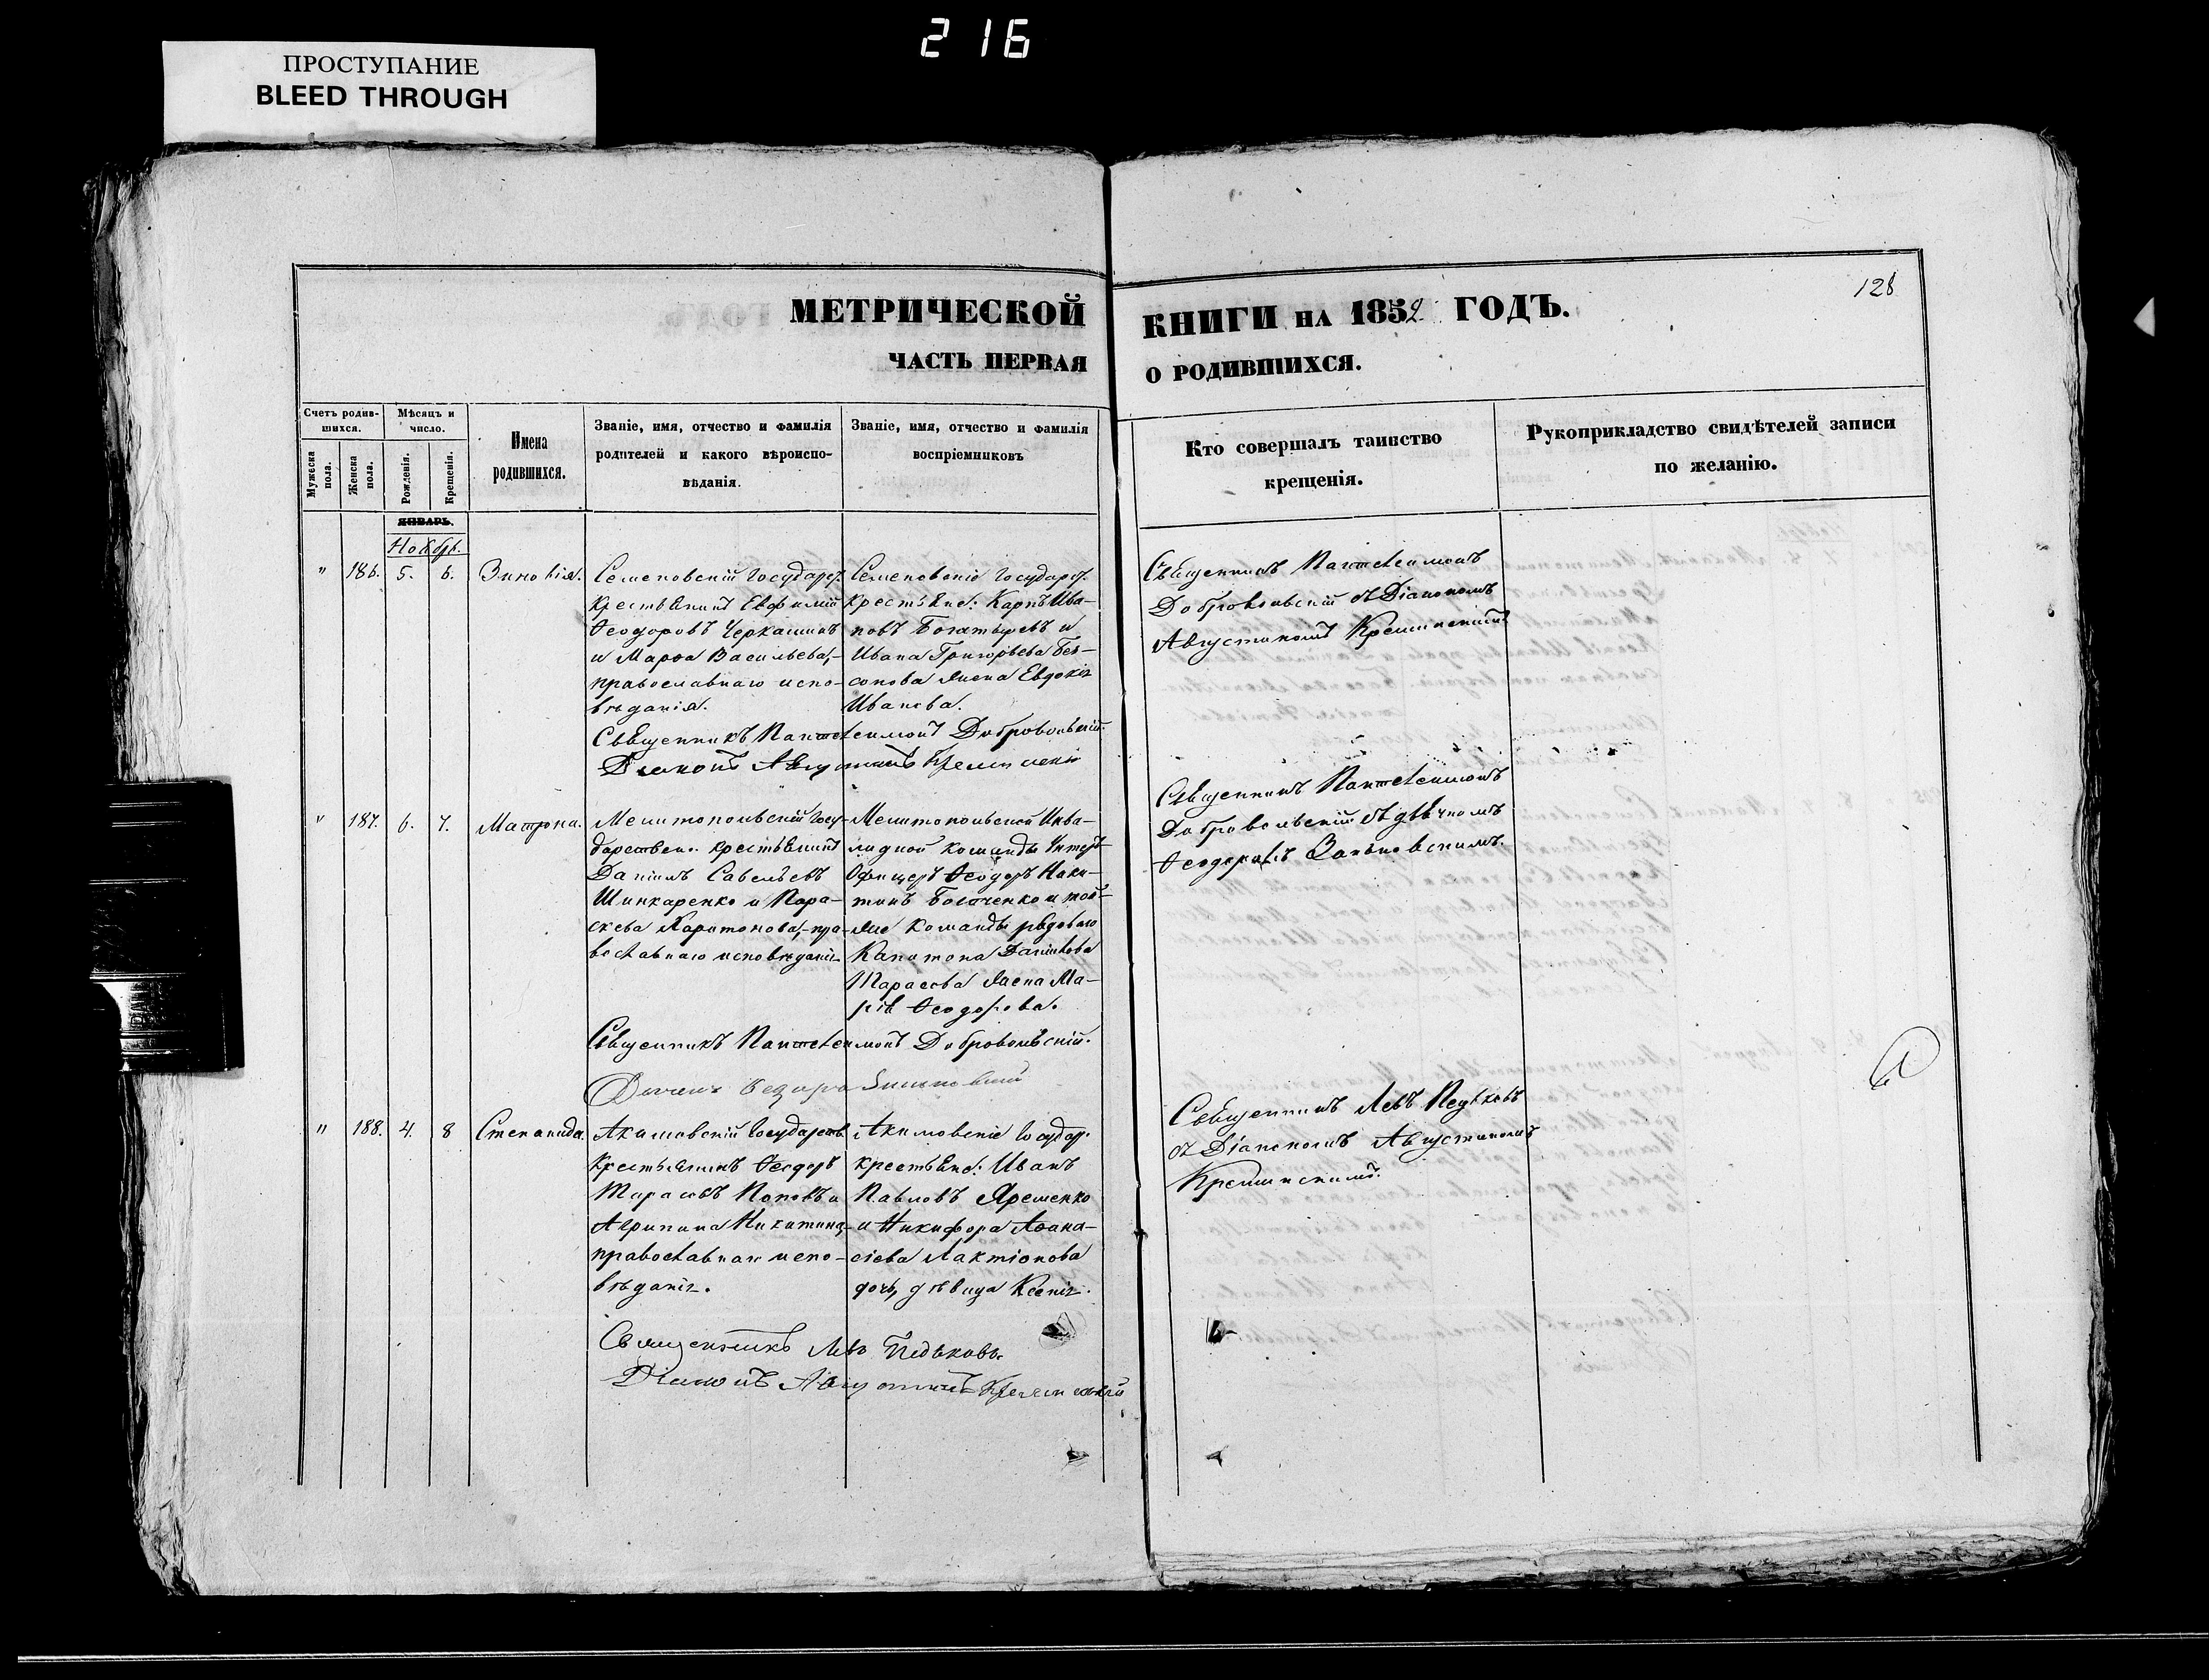 216
ПРОСТУПАНИЕ
BLEED THROUGH
128
МЕТРИЧЕСКОЙ
ЧАСТЬ ПЕРВАЯ
КНИГИ НА 1852 ГОДЪ.
О РОДИВШИХСЯ.
Счетъ родив-
шихся.
Мужеска
пола.
Женска
пола.
Мѣсяцъ и
число.
Рожденія.
Крещенія.
Имена
родившихся.
Званіе, имя, отчество и фамилія
родителей и какого вѣроиспо-
вѣданія.
Званіе, имя, отчество и фамилія
воспріемниковъ
Кто совершалъ таинство
крещенія.
Рукоприкладство свидѣтелей записи
по желанію.
ЯНВАРЬ.
Ноябрь.
" 186. 5. 6. Зиновія.
Семеновскій Государ.
крестьянинъ Евфимій
Ѳеодоровъ Черкашинъ
и Марѳа Васильева,-
православнаго испо-
вѣданія.
Семеновскіе Государ.
крестьяне: Карпъ Ива-
новъ Богатыревъ и
Ивана Григорьева Без-
сонова жена Евдокія
Иванова.
Священникъ Пантелеимонъ Добровольскій.
Діаконъ Августинъ Кременскій
Священникъ Пантелеимонъ
Добровольскій съ Діакономъ
Августиномъ Кременскимъ
" 187. 6. 7. Матрона.
Мелитопольскій Госу-
дарствен. крестьянинъ
Даніилъ Савельевъ
Шинкаренко и Пара-
скева Харитонова,-пра-
вославнаго исповѣданія
Мелитопольской Инва-
лидной команды Унтеръ
Офицеръ Ѳеодоръ Ники-
тинъ Богаченко и той-
же команды рядоваго
Капитона Данилова
Тарасова жена Ма-
рія Ѳеодорова.
Священникъ Пантелеимонъ Добровольскій.
Священникъ Пантелеимонъ
Добровольскій съ дьячкомъ
Ѳеодоромъ
" 188. 4. 8 Степанида.
Акимовскій Государств.
Крестьянинъ Ѳеодоръ
Тарасовъ Поповъ и
Агрипина Никитина,-
православнаго испо-
вѣданія.
Акимовскіе Государ.
крестьяне: Иванъ
Павловъ Яременко
и Никифора Аѳана-
сіева Лактіонова
дочь, дѣвица Ксенія.
Священникъ Левъ Педьковъ.
Діаконъ Августинъ Кременскій
Священникъ Левъ Педьковъ
съ Діакономъ Августиномъ
Кременскимъ.